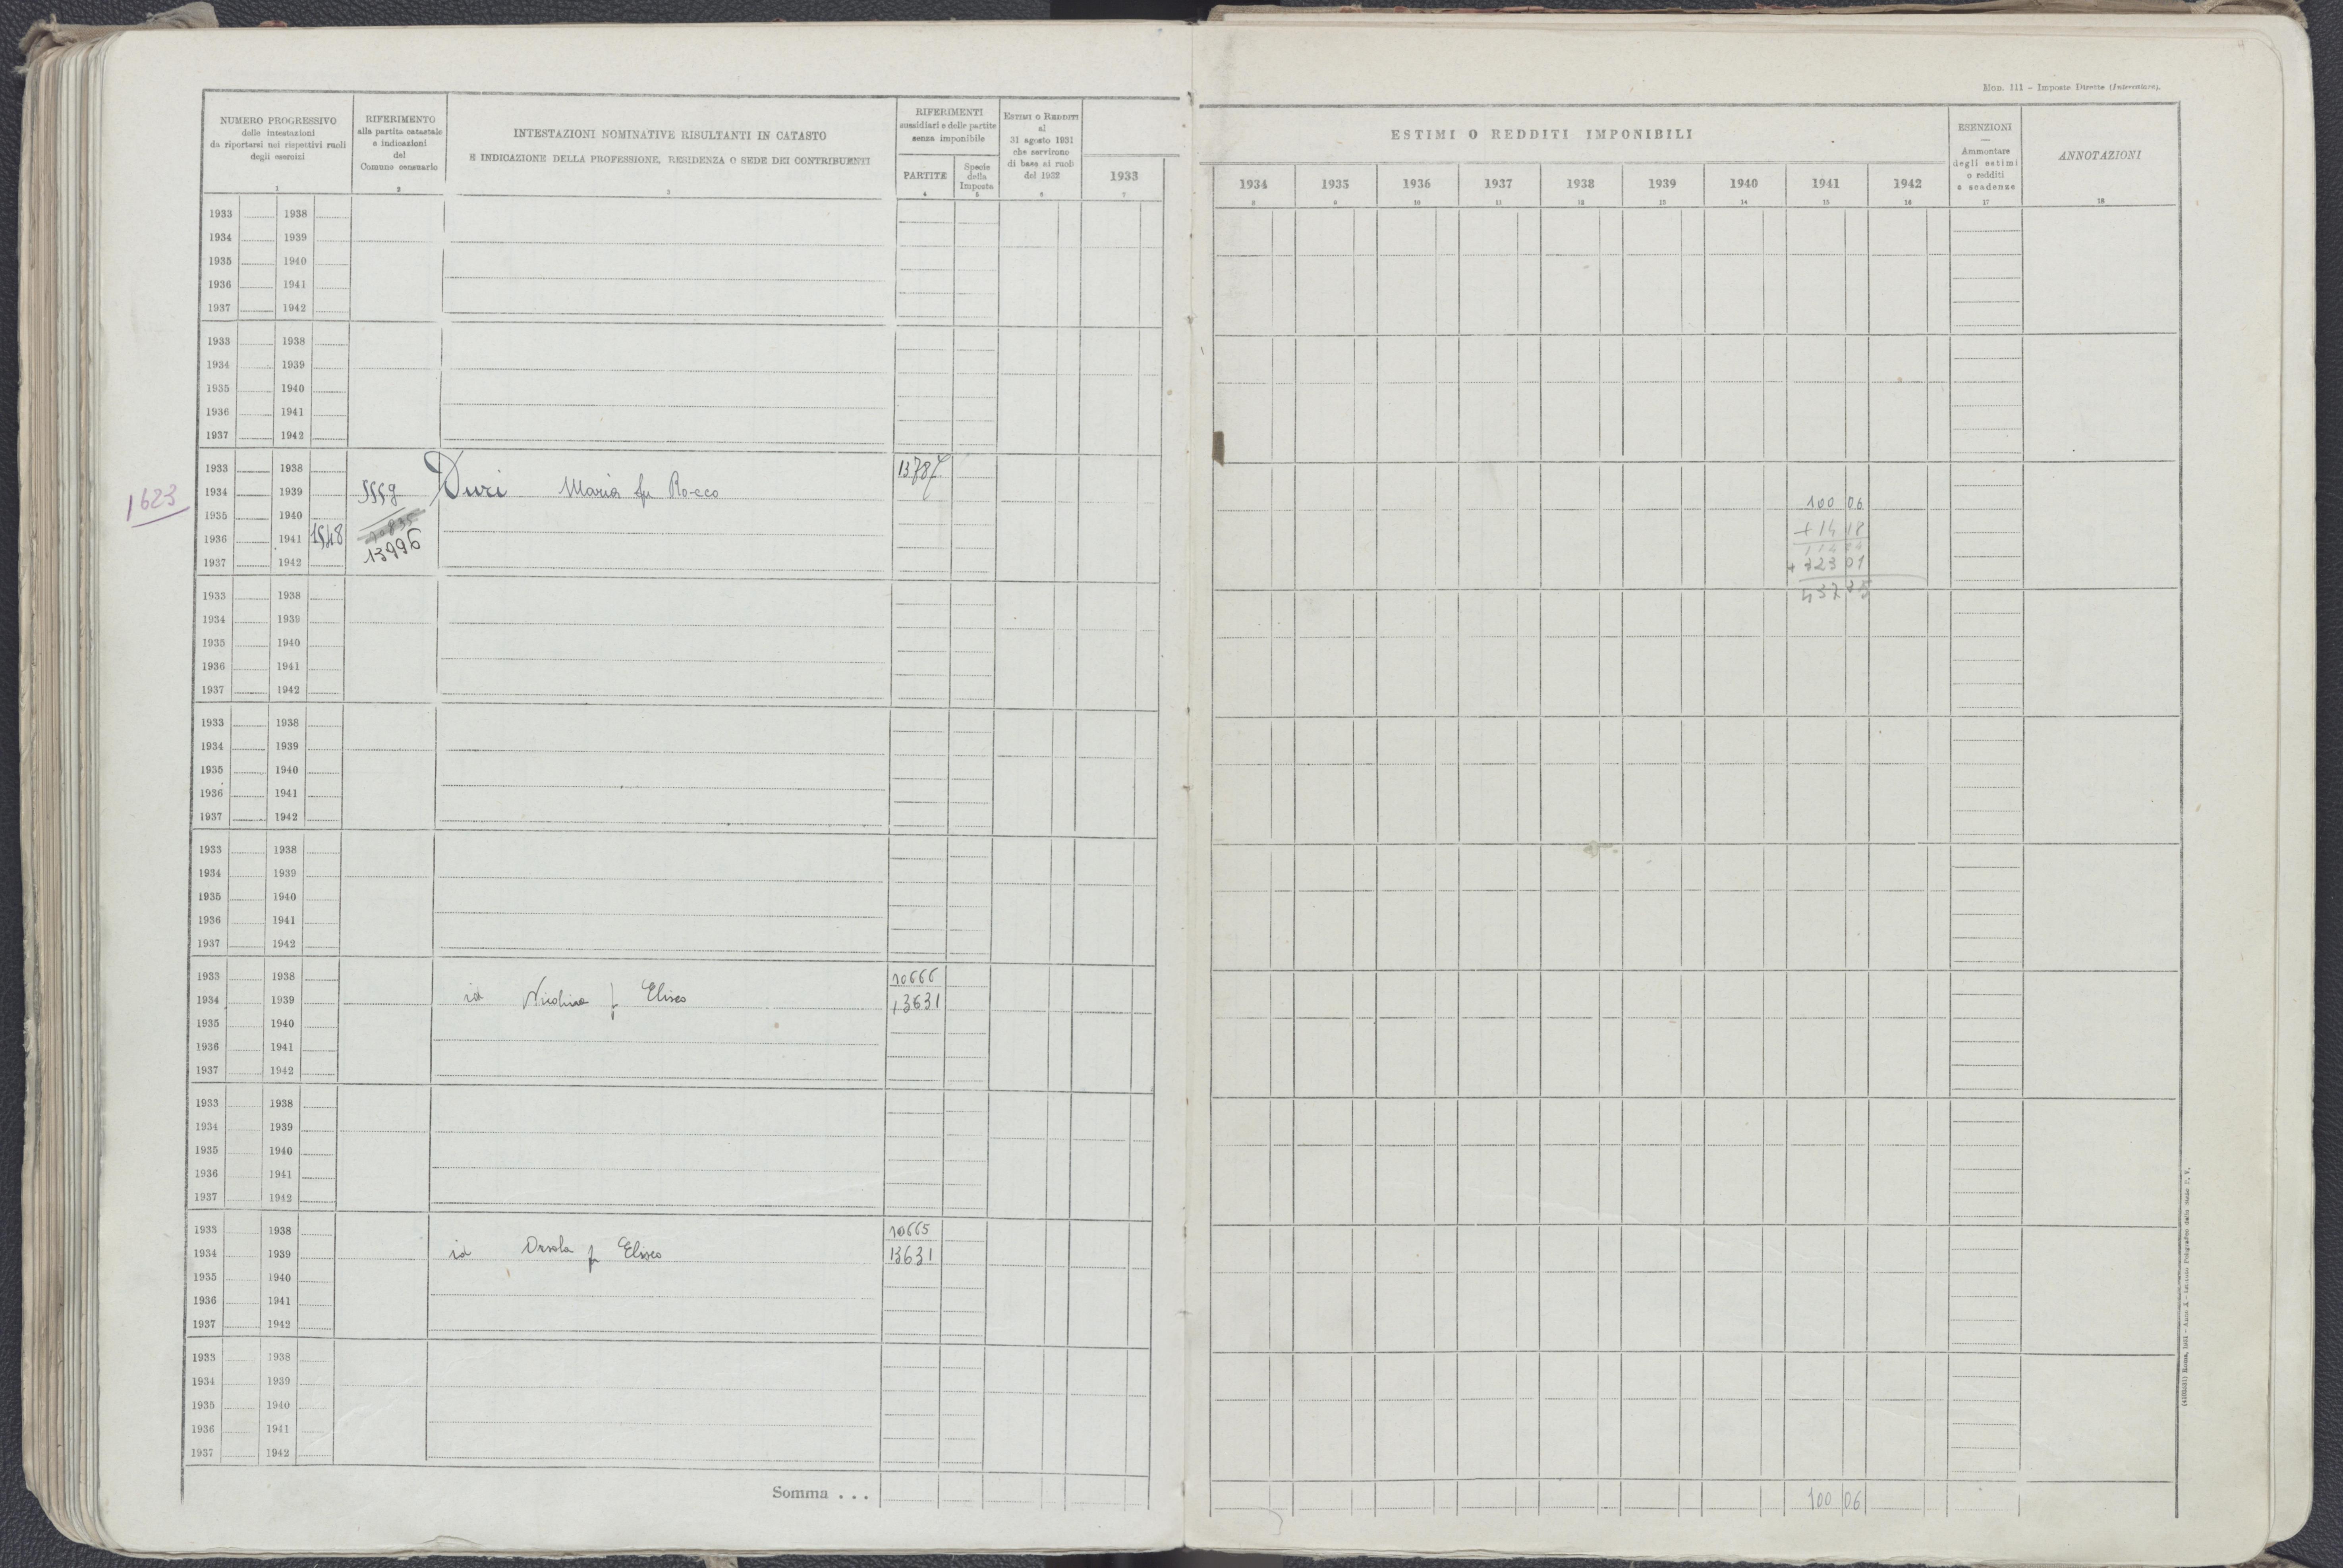 Mod. 111 – Imposte Dirette (Intercalare).
NUMERO PROGRESSIVO
delle intestazioni
da riportarsi nei rispettivi ruoli
degli esercizi
1
RIFERIMENTO
alla partita catastale
e indicazioni
del
Comune censuario
2
INTESTAZIONI NOMINATIVE RISULTANTI IN CATASTO
E INDICAZIONE DELLA PROFESSIONE, RESIDENZA O SEDE DEI CONTRIBUENTI
3
RIFERIMENTI
sussidiari e delle partite
senza imponibile
PARTITE
4
Specie
della
Imposta
5
ESTIMI O REDDITI
al
31 agosto 1931
che servirono
di base ai ruoli
del 1932
6
1933
7
ESTIMI O REDDITI IMPONIBILI
1934 1935 1936 1937 1938 1939 1940 1941 1942
8 9 10 11 12 13 14 15 16
ESENZIONI
—
Ammontare
degli estimi
o redditi
e scadenze
17
ANNOTAZIONI
18
1933 1938
1934 1939
1935 1940
1936 1941
1937 1942
1933 1938
1934 1939
1935 1940
1936 1941
1937 1942
1933 1938 13787
1623 1934 1939 5559 Duri Maria fu Rocco
1935 1940 100 06
1936 1941 1548 13996 +14 18
1937 1942
1933 1938
1934 1939
1935 1940
1936 1941
1937 1942
1933 1938
1934 1939
1935 1940
1936 1941
1937 1942
1933 1938
1934 1939
1935 1940
1936 1941
1937 1942
1933 1938 10666
1934 1939 id Nicolina f Eliseo 13631
1935 1940
1936 1941
1937 1942
1933 1938
1934 1939
1935 1940
1936 1941
1937 1942
1933 1938 10665
1934 1939 id Orsola fu Eliseo 13631
1935 1940
1936 1941
1937 1942
1933 1938
1934 1939
1935 1940
1936 1941
1937 1942
Somma . . . 100 06